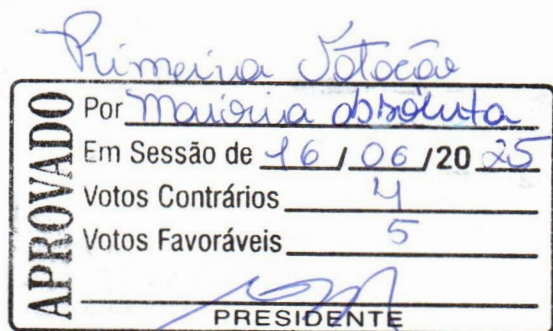 Primeira Votação
APROVADO
Por Maioria absoluta
Em Sessão de 16 / 06 /20 25
Votos Contrários 4
Votos Favoráveis 5
PRESIDENTE